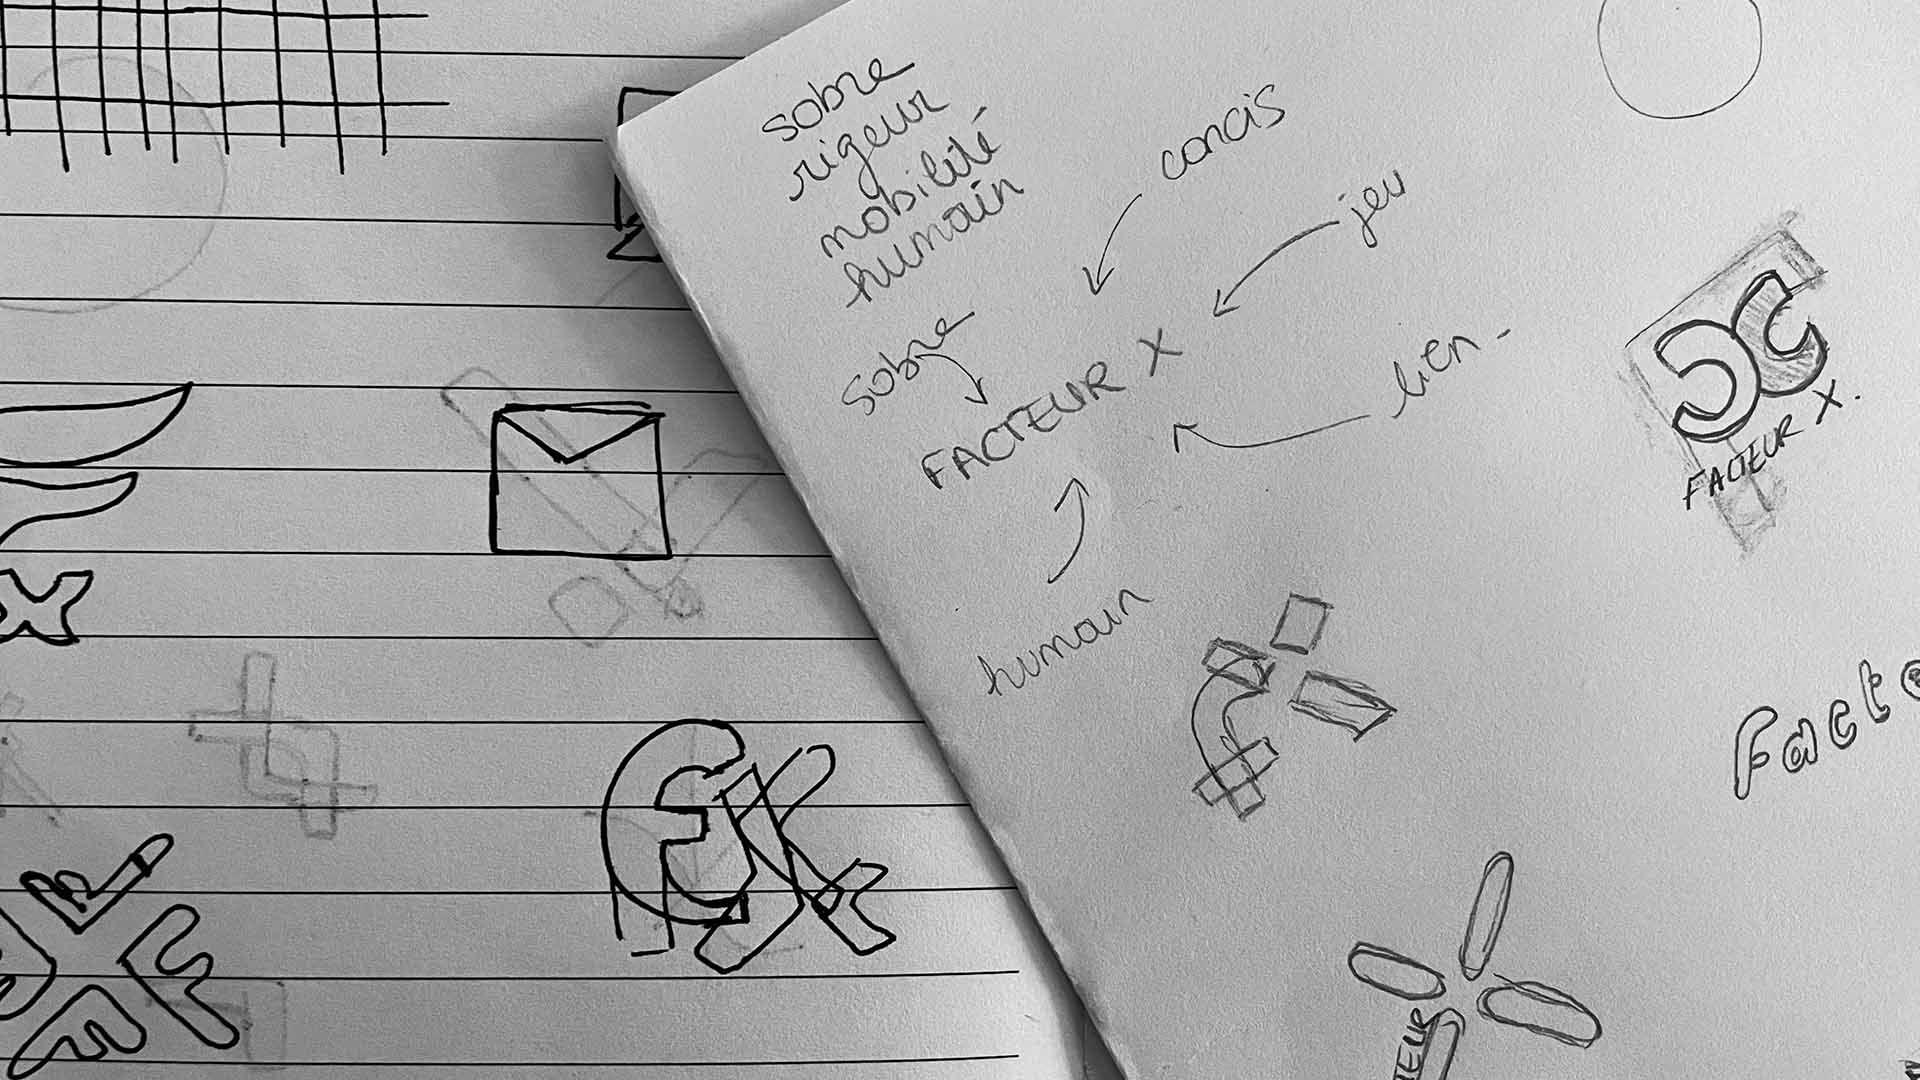 sobre
rigeur
mobilité
humain
concis
jeu
sobre
FACTEUR X
lien -
humain
FACTEUR X.
Facte
TEUR
x